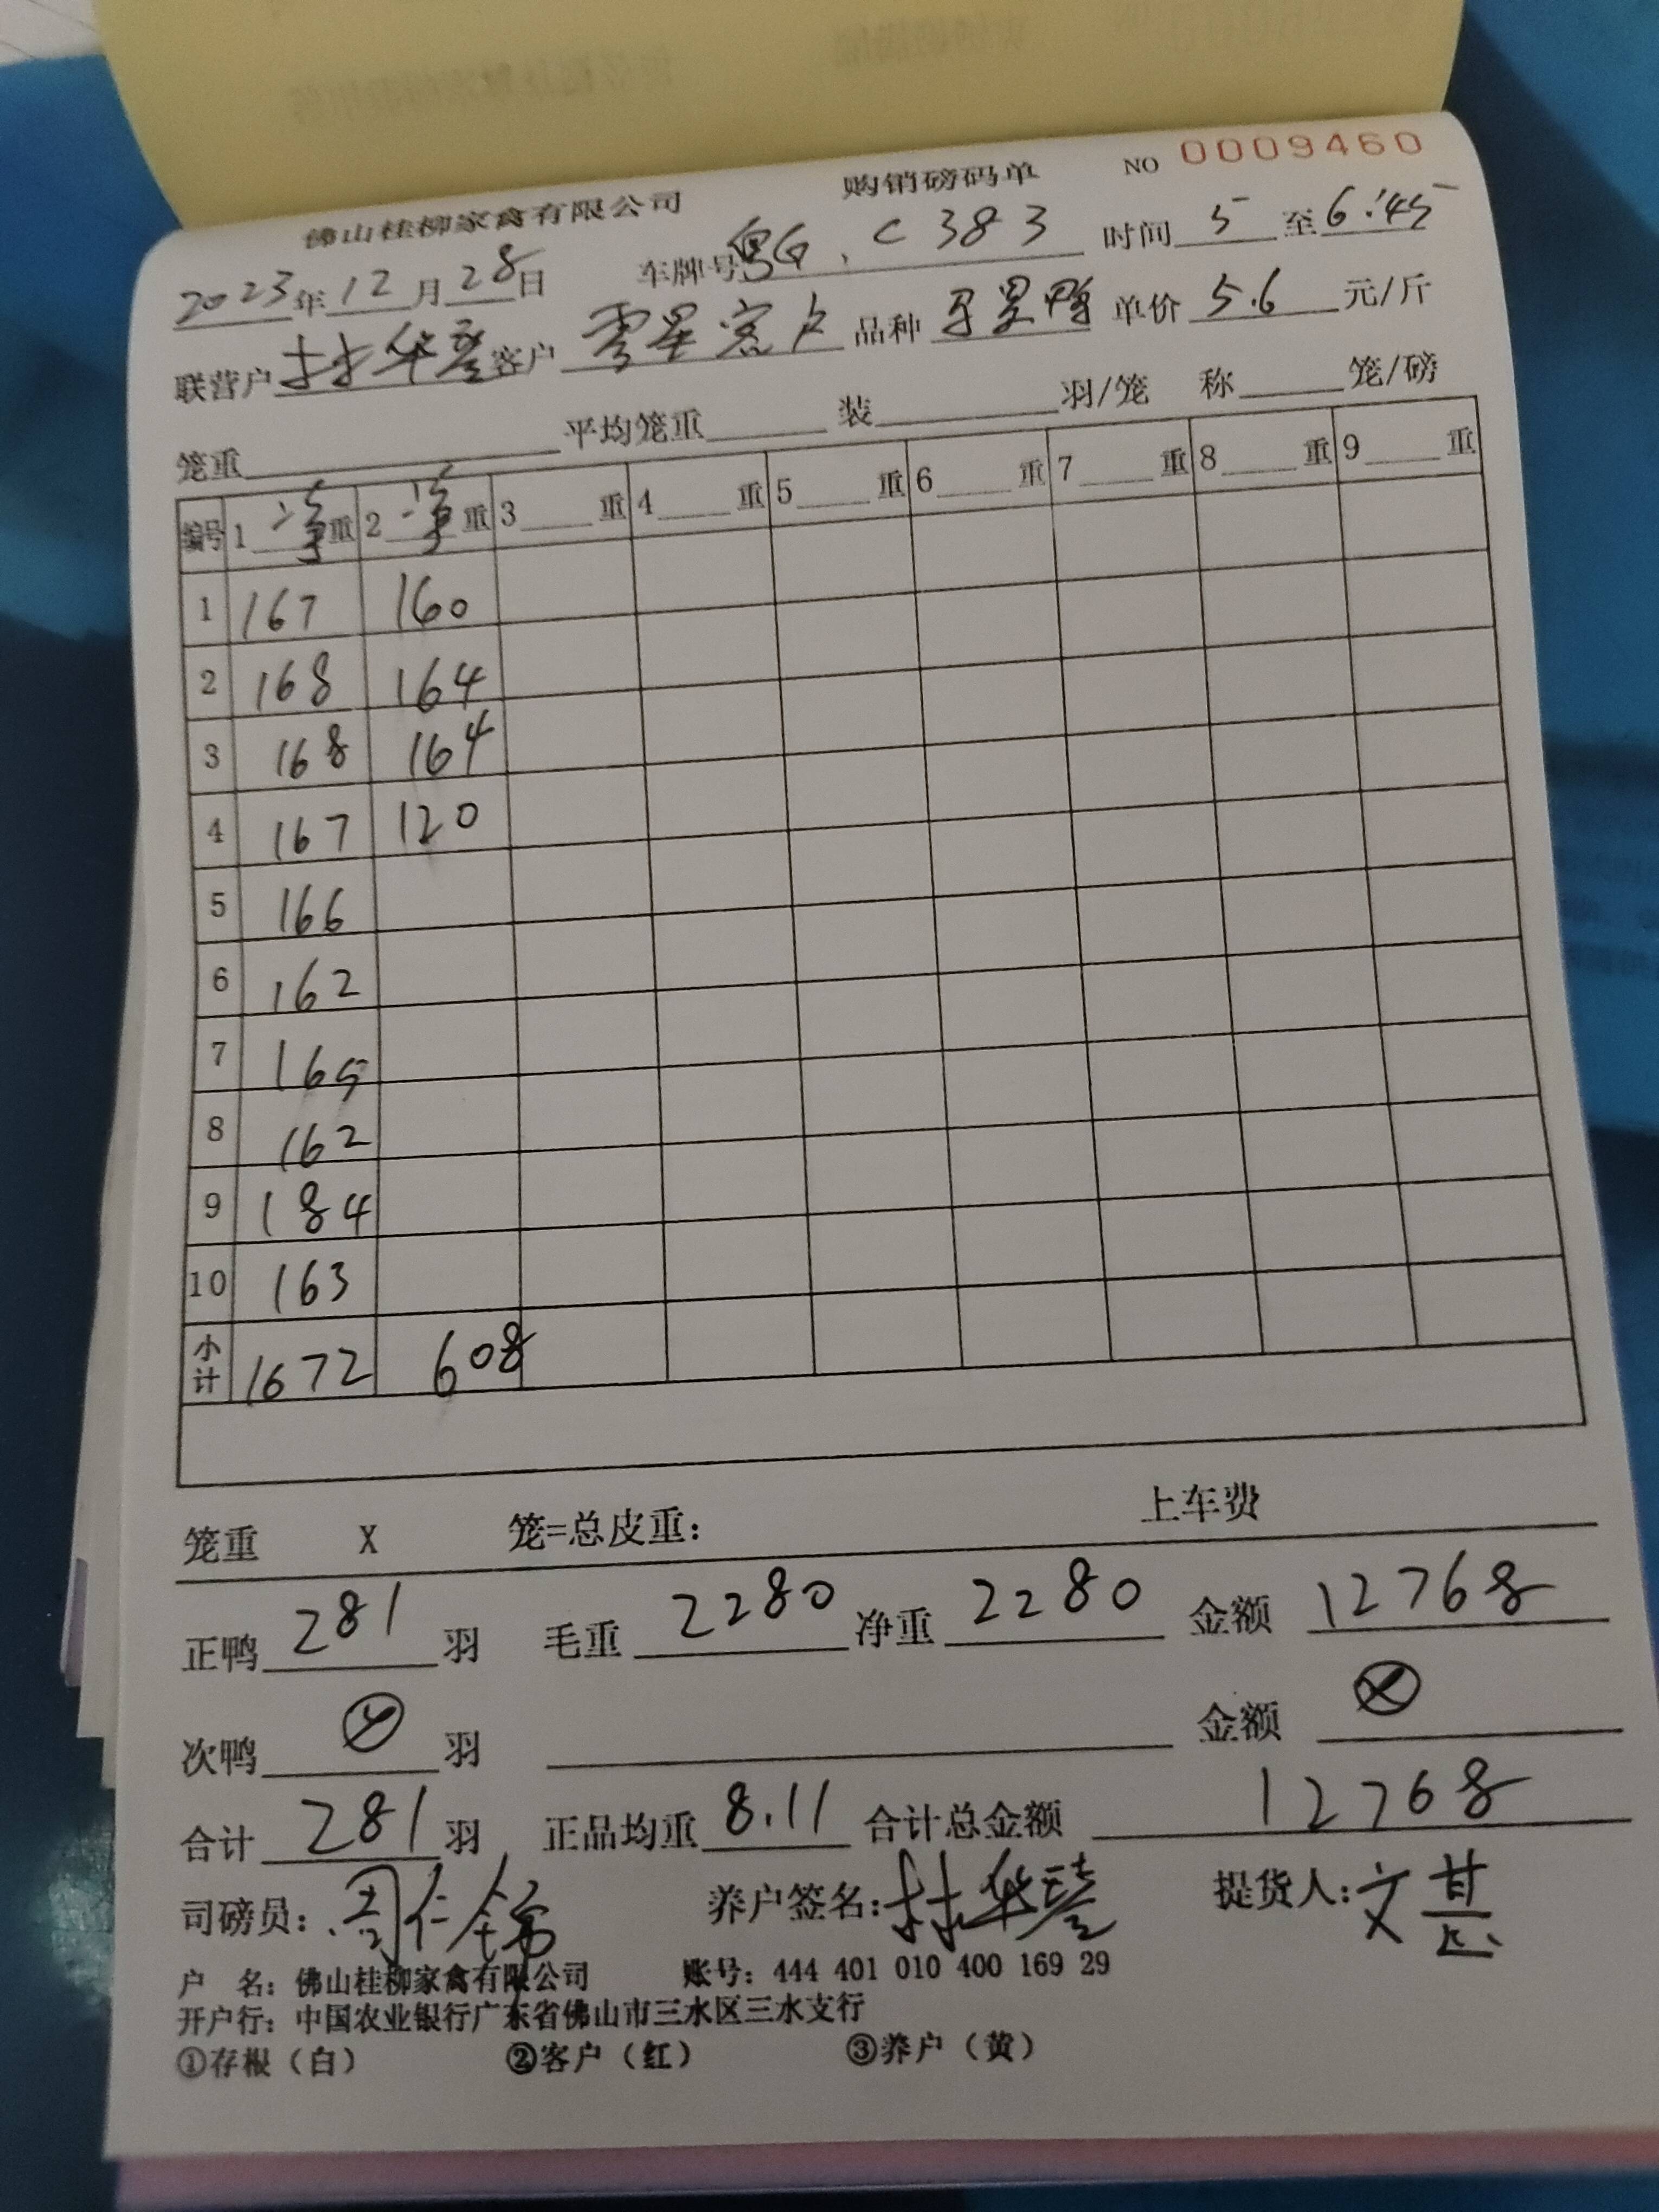 佛山桂柳家禽有限公司 购销磅码单 NO 0009460
2023年12月28日 车牌号粤G、C383 时间 5 至 6:45
联营户 林华 客户 零星客户 品种 单价 5.6 元/斤
笼重 平均笼重 装 羽/笼 称 笼/磅
编号 1净重 2净重 3 重 4 重 5 重 6 重 7 重 8 重 9 重
1 167 160
2 168 164
3 168 164
4 167 120
5 166
6 162
7 165
8 162
9 184
10 163
小计 1672 608
笼重 X 笼=总皮重: 上车费
正鸭 281 羽 毛重 2280 净重 2280 金额 12768
次鸭 羽 金额
合计 281 羽 正品均重 8.11 合计总金额 12768
司磅员: 周仁锦 养户签名: 林华 提货人: 文甚
户 名: 佛山桂柳家禽有限公司 账号: 444 401 010 400 169 29
开户行: 中国农业银行广东省佛山市三水区三水支行
①存根（白） ②客户（红） ③养户（黄）